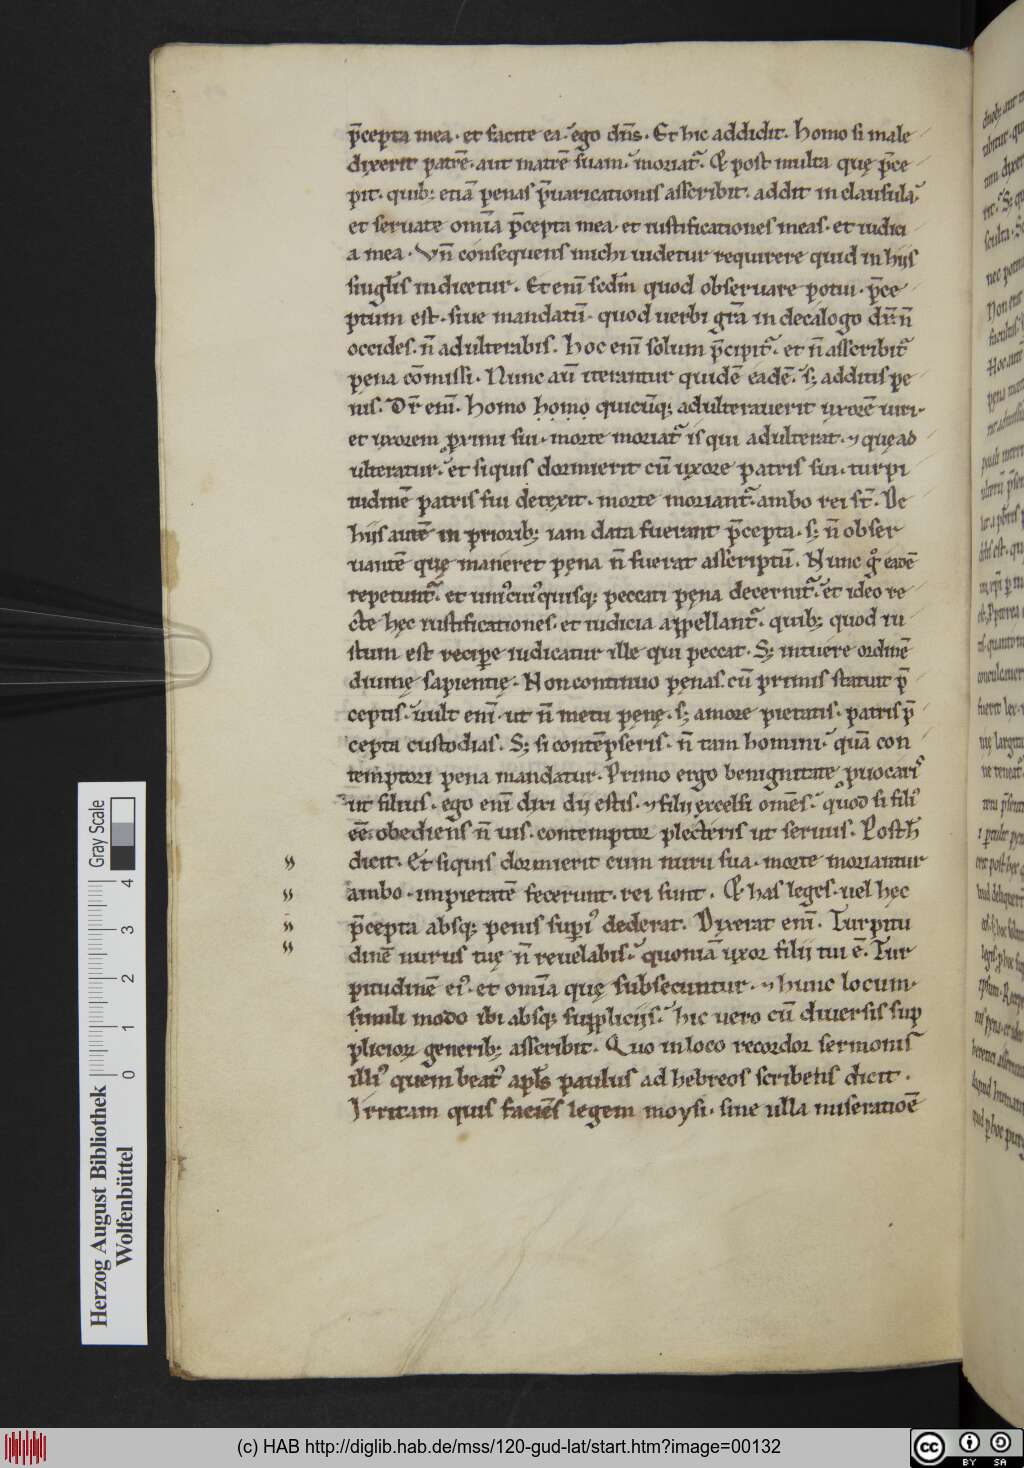 p̄cepta mea · et facite ea. ego dn̄s. Et hic addidit. Homo si male
dixerit patrē · aut matrē suam. moriat̄. Et post multa que p̄ce
pit. quib; etiā penas p̄uaricationis asscribit. addit in clausula.
et seruate om̄ia p̄cepta mea · et iustificationes meas · et iudici
a mea. Vn̄ consequens michi uidetur requirere quid in hiis
singl̄is indicetur. Et eni sedm̄ quod obseruare potui · p̄ce
ptum est · siue mandatū · quod uerbi gr̄a in decalogo dr̄. n̄
occides. n̄ adulterabis. Hoc eni solum p̄cipit̄. et n̄ asscribit̄
pena cōmissi. Nunc au̅ iterantur quidē eadē. s; additis pe
nis. Dr̄ eni̅. Homo homo quicūq; adulterauerit uxorē uiri
et uxorem proximi sui. morte moriat̄ is qui adulterat. et quę ad
ulteratur. et si quis dormierit cū uxore patris sui. turpi
tudinē patris sui detexit. morte moriant̄ ambo rei st̄. De
hiis autē in priorib; iam data fuerant p̄cepta. s; n̄ obser
uantē quę maneret pęna n̄ fuerat asscriptū. Nunc gͦ eadē
repetunt̄. et uniꝰcuiꝰquisq; peccati pęna decernit̄. et ideo re
cte hęc iustificationes. et iudicia appellant̄. quib; quod iu
stum est recipe iudicatur ille qui peccat. S; intuere ordinē
diuinę sapientię. Non continuo penas cū primis statuit p̄
ceptis. uult eni̅. ut n̄ metu penę. s; amore pietatis. patris p̄
cepta custodias. S; si contēpseris. n̄ tam homini. quā con
temptori pena mandatur. Primo ergo benignitate puocarisꝰ
ut filius. ego eni dixi dii estis. et filii excelsi om̄es. quod si filiꝰ
ēē obediens n̄ uis. contemptor plecteris ut seruus. Posth̄
dicit. Et si quis dormierit cum nuru sua. morte moriantur
ambo. impietatē fecerunt. rei sunt. Et has leges. uel hęc
p̄cepta absq; penis superiꝰ dederat. Dixerat eni̅. Turpitu
dinē nurus tuę n̄ reuelabis. quoniā uxor filii tui ē. Tur
pitudinē eiꝰ. et om̄ia quę subsecuntur. et hunc locum.
simili modo ibi absq; suppliciis. hic uero cū diuersis sup
plicior generib; asscribit. Quo in loco recordor sermonis
illiꝰ quem beatꝰ apl̄s paulus ad hebreos scribens dicit.
Irritam quis faciēs legem moysi. sine ulla miseratioē
Herzog August Bibliothek
Wolfenbüttel
Gray Scale
0 1 2 3 4
(c) HAB http://diglib.hab.de/mss/120-gud-lat/start.htm?image=00132
cc BY SA